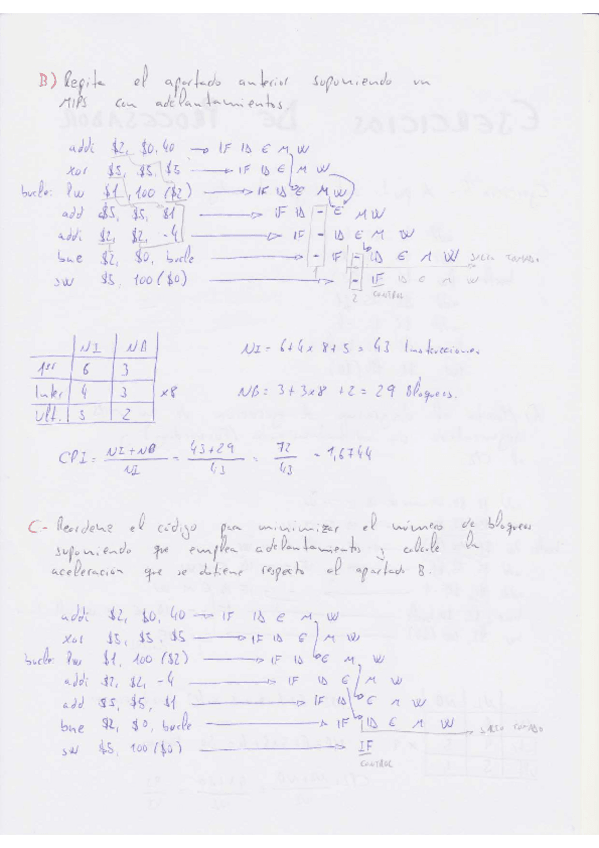 B) Repita el apartado anterior suponiendo un
MIPS con adelantamientos.
addi $2, $0, 40 → IF ID E M W
xor $5, $5, $5 → IF ID E M W
bucle: lw $1, 100 ($2) → IF ID E M W
add $5, $5, $1 → IF ID - E M W
addi $2, $2, -4 → IF - ID E M W
bne $2, $0, bucle → - IF - ID E M W SALTO TOMADO
sw $5, 100 ($0) → - IF ID E M W
1 2 CONTROL
NI NB
1ª 6 3
Inter 4 3 x8
Ult. 5 2
NI = 6+4x8+5 = 43 Instrucciones
NB = 3+3x8+2 = 29 Bloqueos.
CPI = NI+NB / NI = 43+29 / 43 = 72 / 43 = 1,6744
C- Reordene el código para minimizar el número de bloqueos
suponiendo que emplea adelantamientos y calcule la
aceleración que se obtiene respecto al apartado B.
addi $2, $0, 40 → IF ID E M W
xor $5, $5, $5 → IF ID E M W
bucle: lw $1, 100 ($2) → IF ID E M W
addi $2, $2, -4 → IF ID E M W
add $5, $5, $1 → IF ID E M W
bne $2, $0, bucle → IF ID E M W SALTO TOMADO
sw $5, 100 ($0) → IF
CONTROL